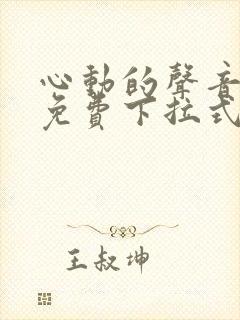 心動的聲音
免費下拉式
王叔坤